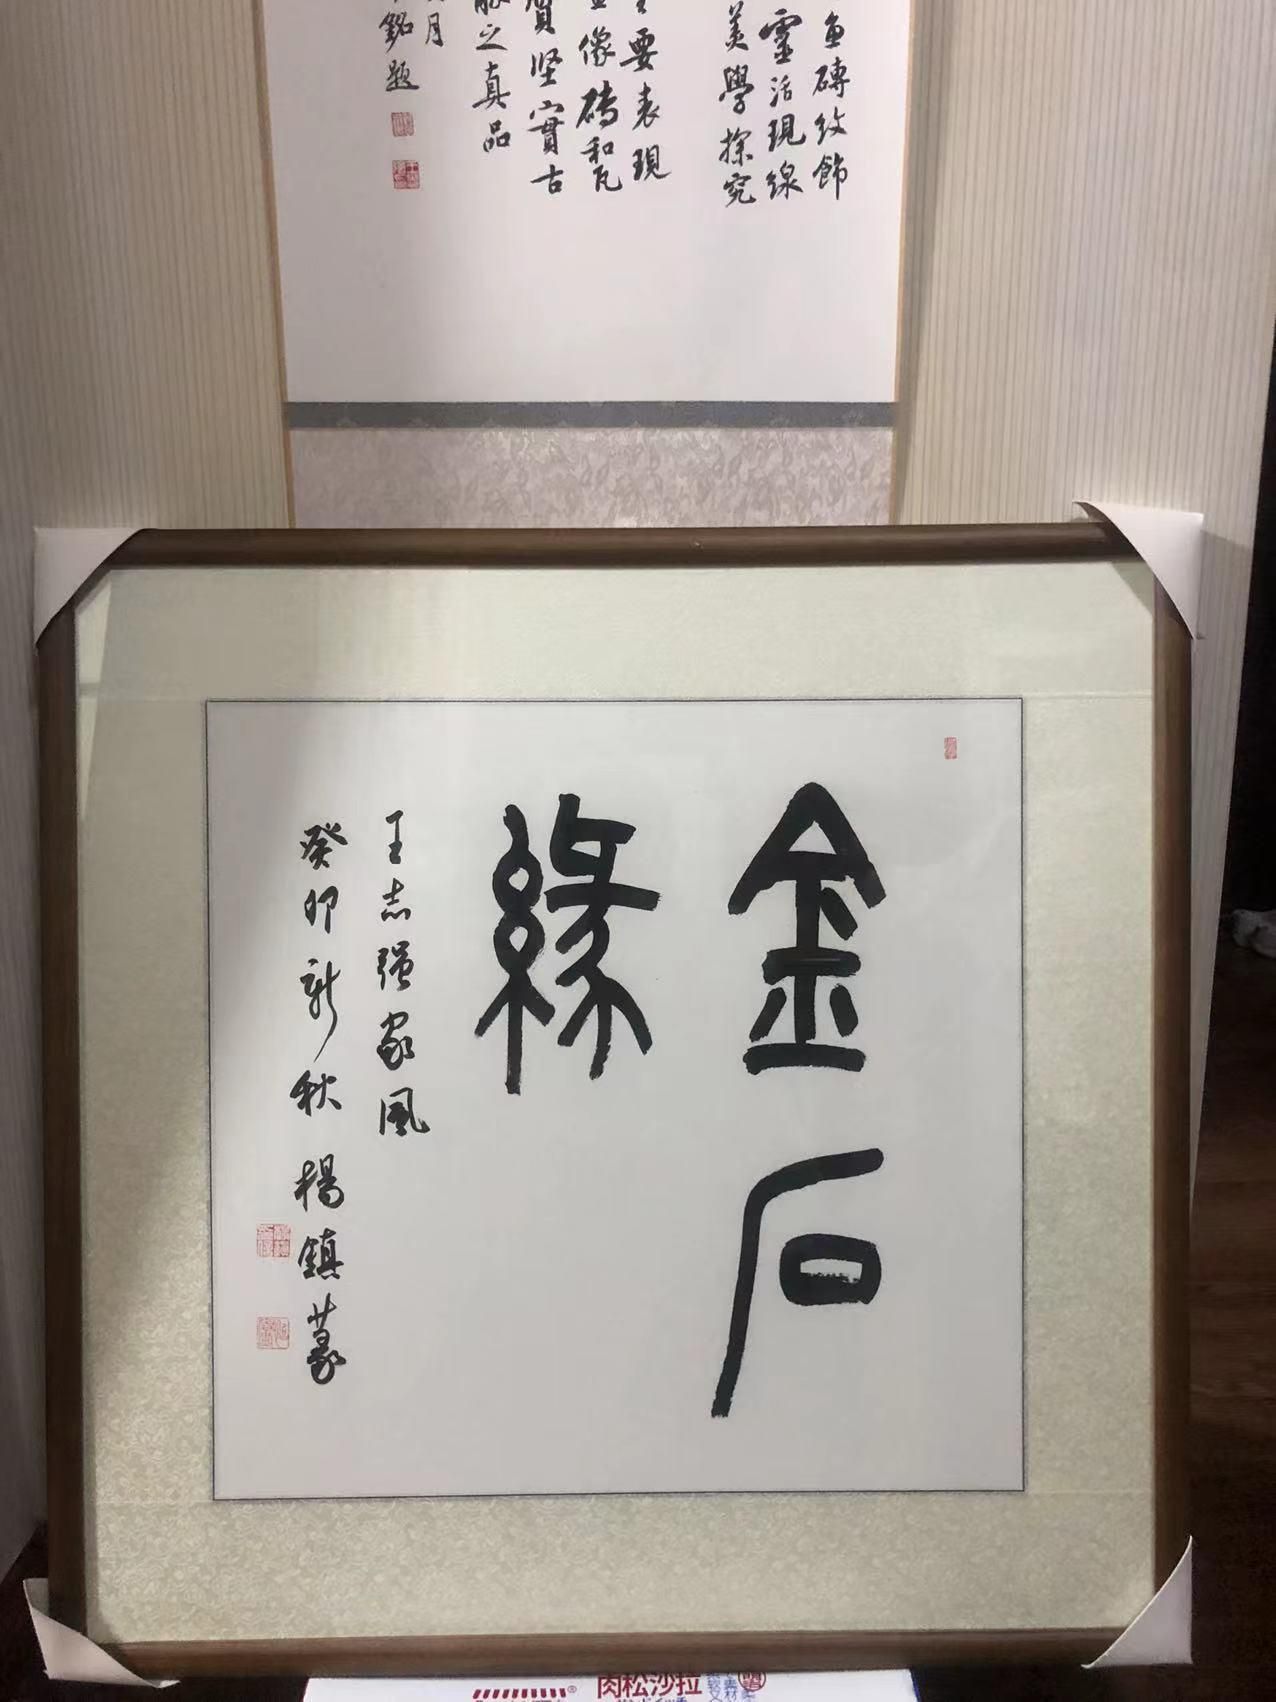 魚磚紋飾
靈活現線
美學探究
要表現
像磚和瓦
質坚實古
脈之真品
月
銘題
金石
緣
王志强家風
癸卯新秋楊鎮篆
肉松沙拉